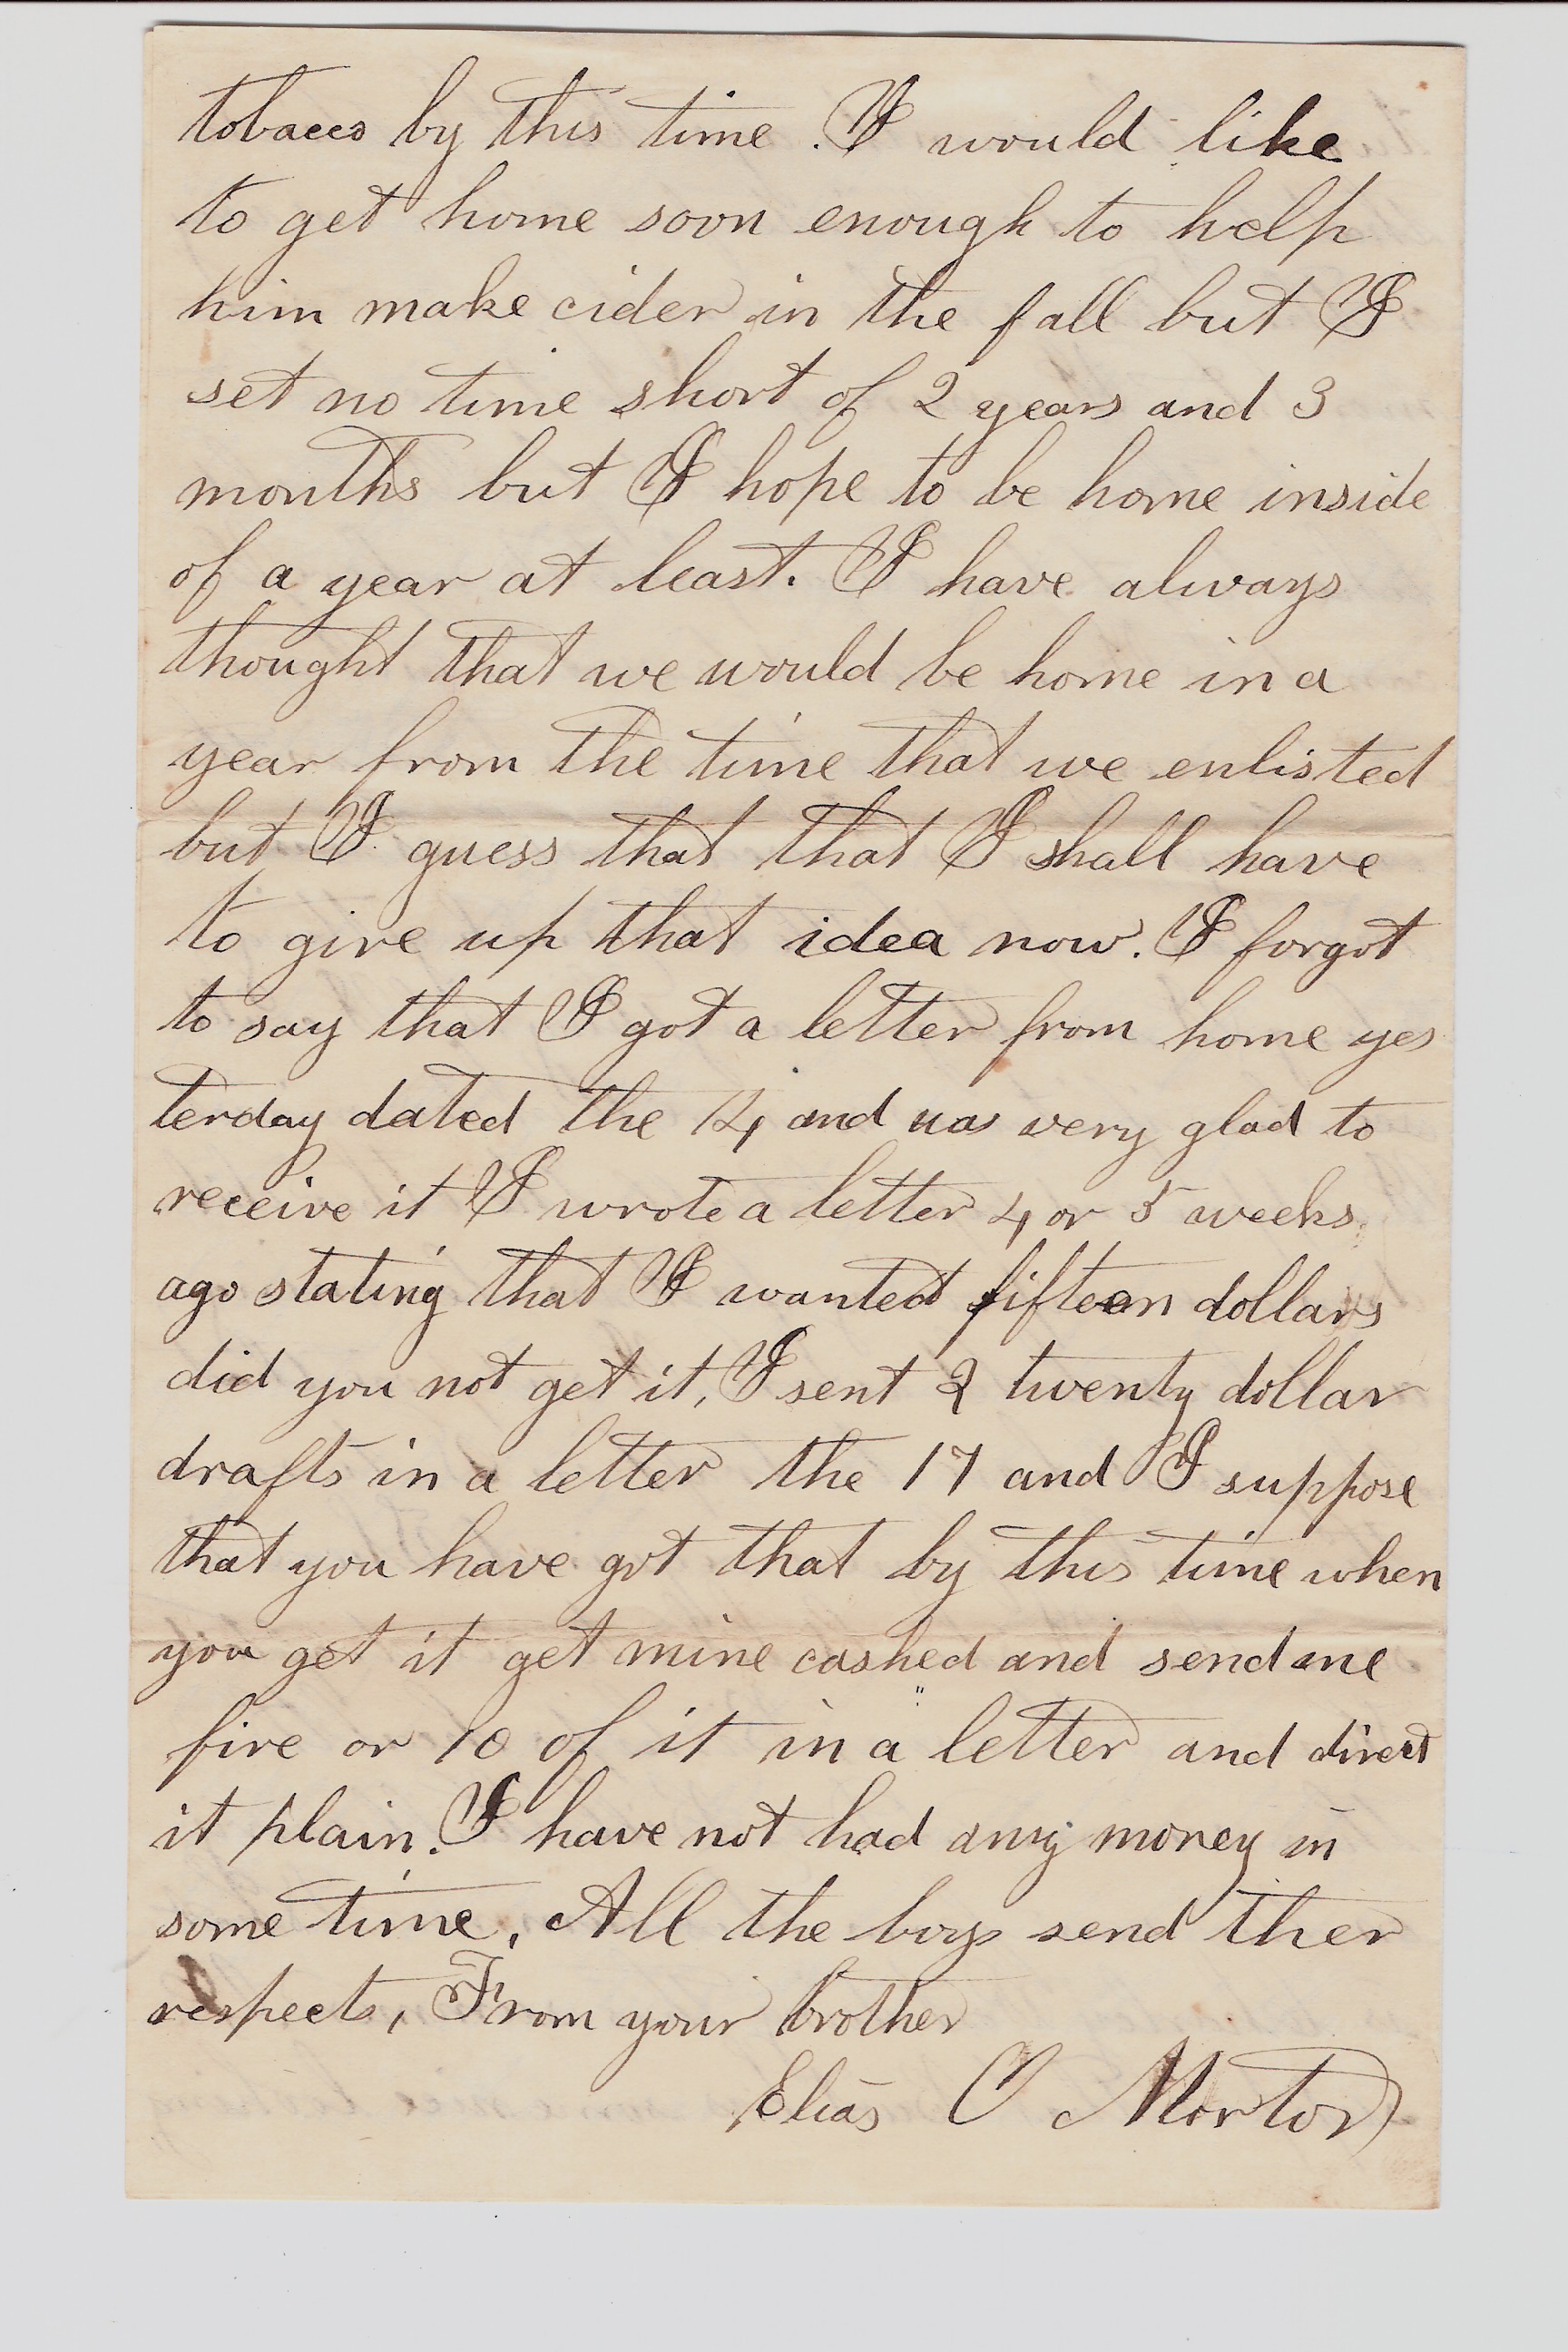 tobacco by this time. I would like
to get home soon enough to help
him make cider in the fall but I
set no time short of 2 years and 3
months but I hope to be home inside
of a year at least. I have always
thought that we would be home in a
year from the time that we enlisted
but I guess that that I shall have
to give up that idea now. I forgot
to say that I got a letter from home yes
terday dated the 14 and was very glad to
receive it I wrote a letter 4 or 5 weeks
ago stating that I wanted fifteen dollars
did you not get it, I sent 2 twenty dollar
drafts in a letter the 17 and I suppose
that you have got that by this time when
you get it get mine cashed and send me
five or 10 of it in a letter and direct
it plain. I have not had any money in
some time. All the boys send ther
respects, From your brother
Elias C Morton